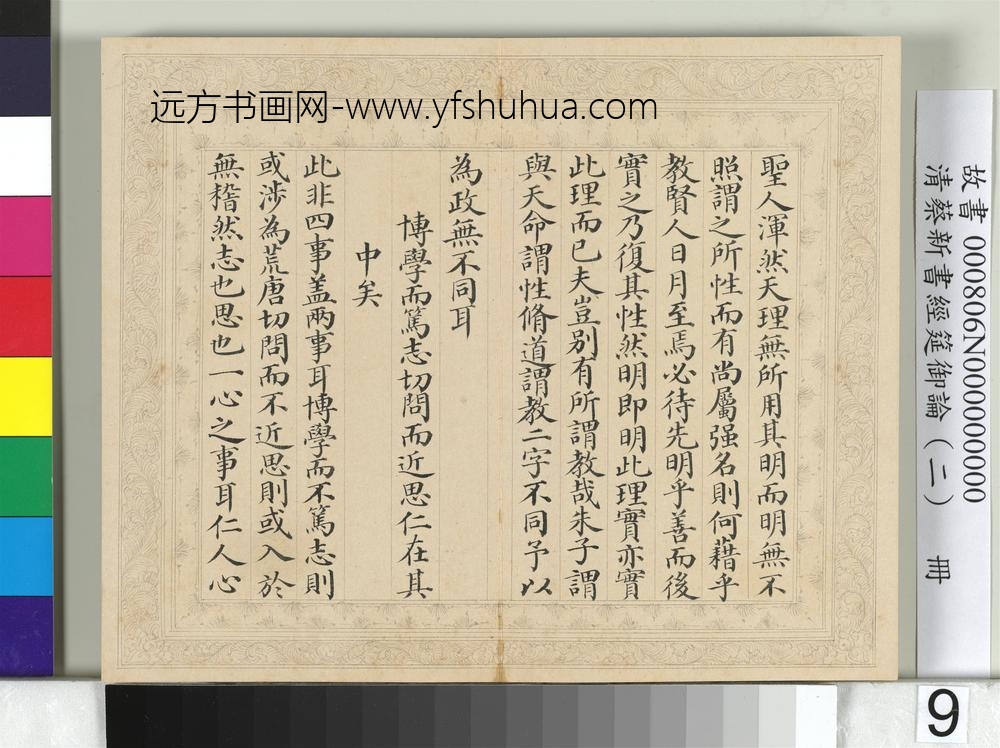 远方书画网-www.yfshuhua.com
聖人渾然天理無所用其明而明無不
照謂之所性而有尚屬强名則何藉乎
教賢人日月至焉必待先明乎善而後
實之乃復其性然明即明此理實亦實
此理而已夫豈别有所謂教哉朱子謂
與天命謂性脩道謂教二字不同予以
為政無不同耳
博學而篤志切問而近思仁在其
中矣
此非四事盖兩事耳博學而不篤志則
或涉為荒唐切問而不近思則或入於
無稽然志也思也一心之事耳仁人心
故書 000806N000000000
清蔡新書經筵御論(二) 冊
9